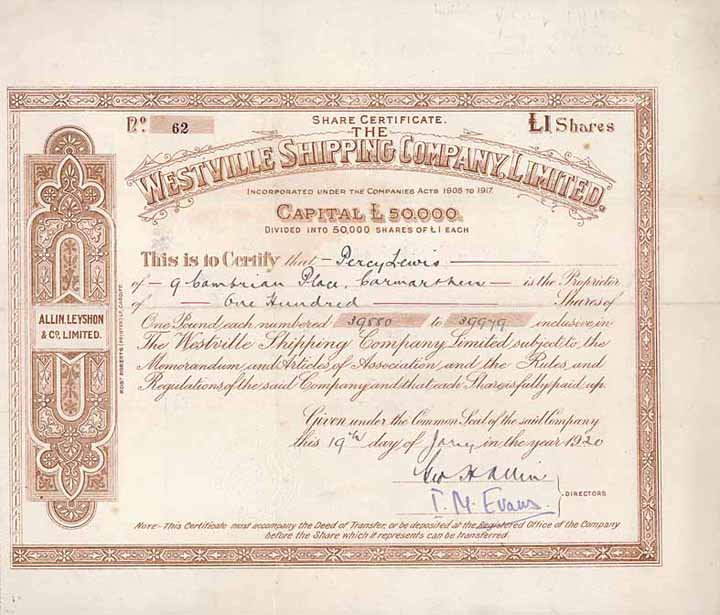 No. 62
SHARE CERTIFICATE.
£1 Shares
THE
WESTVILLE SHIPPING COMPANY, LIMITED.
INCORPORATED UNDER THE COMPANIES ACTS 1908 TO 1917.
CAPITAL £50,000.
DIVIDED INTO 50,000 SHARES OF £1 EACH
This is to Certify that Percy Lewis
of 9 Cambrian Place, Carmarthen is the Proprietor
of One Hundred Shares of
One Pound each numbered to 39979 inclusive in
The Westville Shipping Company Limited subject to the
Memorandum and Articles of Association and the Rules and
Regulations of the said Company and that each Share is fully paid up.
Given under the Common Seal of the said Company
this 19th day of Jany in the year 1920
Geo H Allin
T. M. Evans
DIRECTORS
NOTE - This Certificate must accompany the Deed of Transfer, or be deposited at the Registered Office of the Company
before the Share which it represents can be transferred
ALLIN, LEYSHON
& CO, LIMITED.
ROBT ROBERTS (PRINTERS) LD, CARDIFF.